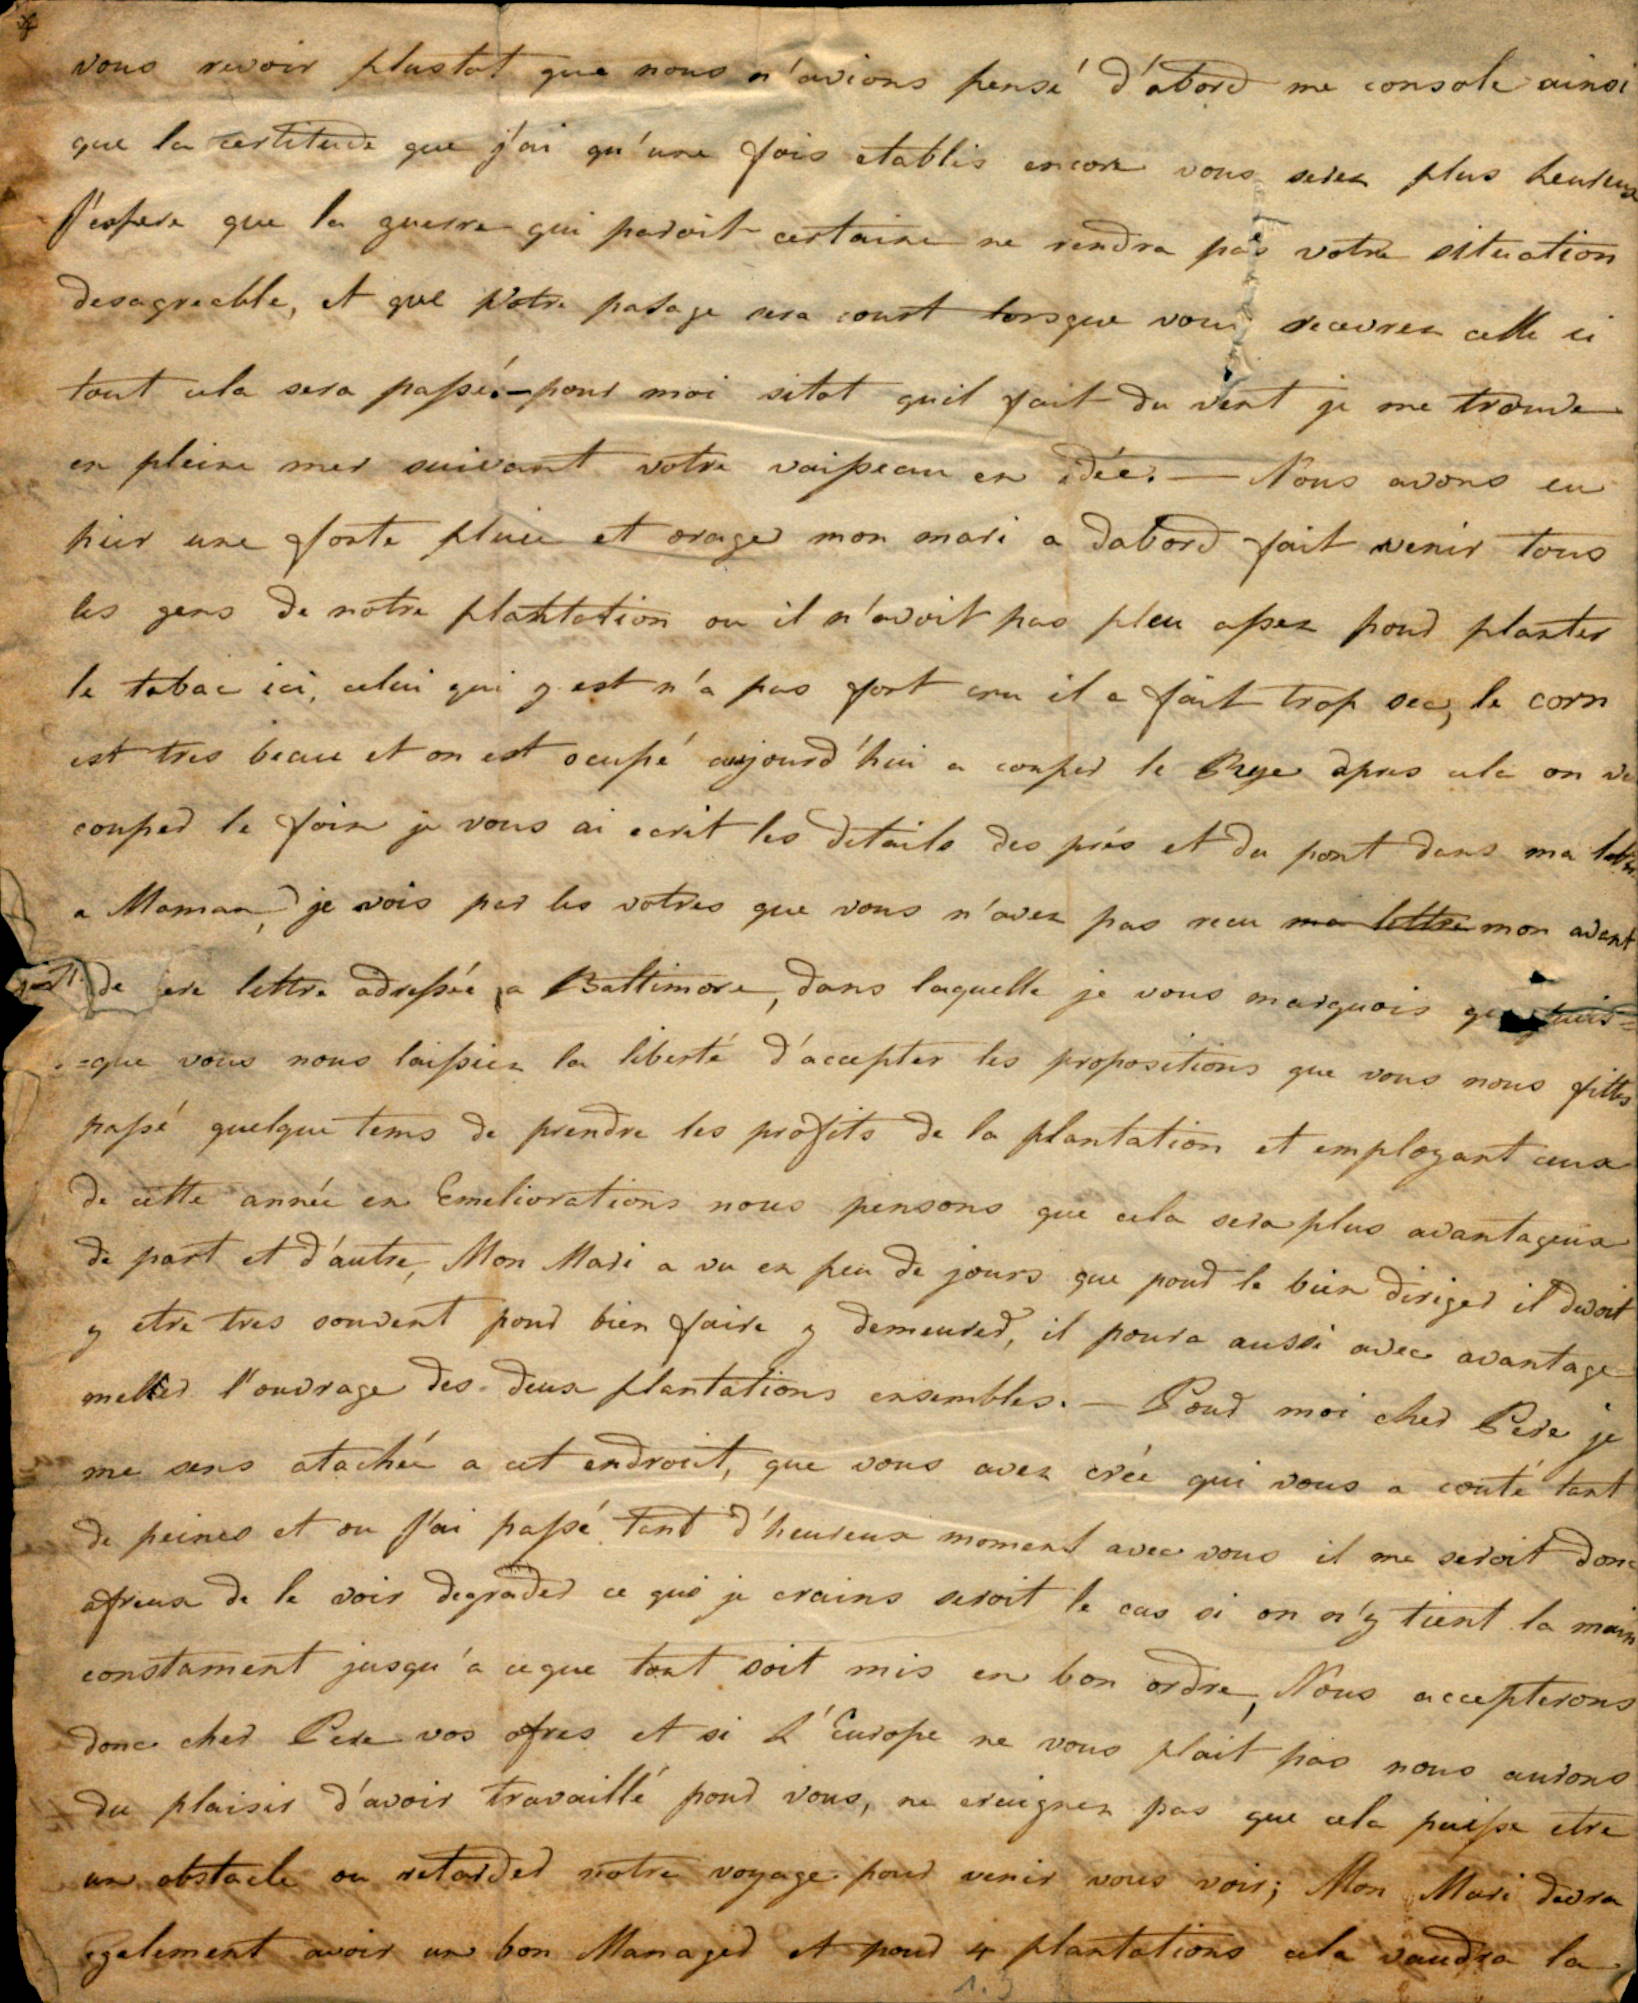 vous revoir plustot que nous n'avions pensé d'abord me console ainsi
que la certitude que j'ai qu'une fois etablis encore vous serez plus heureux
J'espere que la guerre qui paroit certaine ne rendra pas votre situation
desagreable, et que Votre pasage sera court lorsque vous recevrez cette ci
tout cela sera passé. — pour moi sitot quil fait du vent je me trouve
en pleine mer suivant votre vaisseau en idée. — Nous avons eu
hier une forte pluie et orage mon mari a dabord fait venir tous
les gens de notre plantation ou il n'avoit pas pleu assez pour planter
le tabac ici, celui qui y est n'a pas fort cru il a fait trop sec, le corn
est tres beau et on est ocupé aujourd'hui a couper le Rye apres cela on va
couper le foin je vous ai ecrit les details des prés et du pont dans ma lettre
a Maman, je vois par les votres que vous n'avez pas recu ma lettre mon avant
de ere lettre adressée a Baltimore, dans laquelle je vous marquois que puis=
=que vous nous laissiez la liberté d'accepter les propositions que vous nous fittes
passé quelque tems de prendre les profits de la plantation et employant ceux
de cette année en Emeliorations nous pensons que cela sera plus avantageux
de part et d'autre, Mon Mari a vu en peu de jours que pour le bien diriger il devoit
y etre tres souvent pour bien faire y demeurer, il poura aussi avec avantage
meller l'ouvrage des deux plantations ensembles. — Pour moi cher Pere je
me sens atachée a cet endroit, que vous avez crée qui vous a couté tant
de peines et ou j'ai passé tant d'heureux moment avec vous il me seroit donc
afreux de le voir degrader ce que je crains seroit le cas si on n'y tient la main
constament jusqu'a ceque tout soit mis en bon ordre, Nous accepterons
donc cher Pere vos ofres et si L'Europe ne vous plait pas nous aurons
du plaisir d'avoir travaillé pour vous, ne craignez pas que cela puisse etre
un obstacle ou retarder notre voyage pour venir vous voir; Mon Mari devra
egalement avoir un bon Manager et pour 4 plantations cela vaudra la
1.3